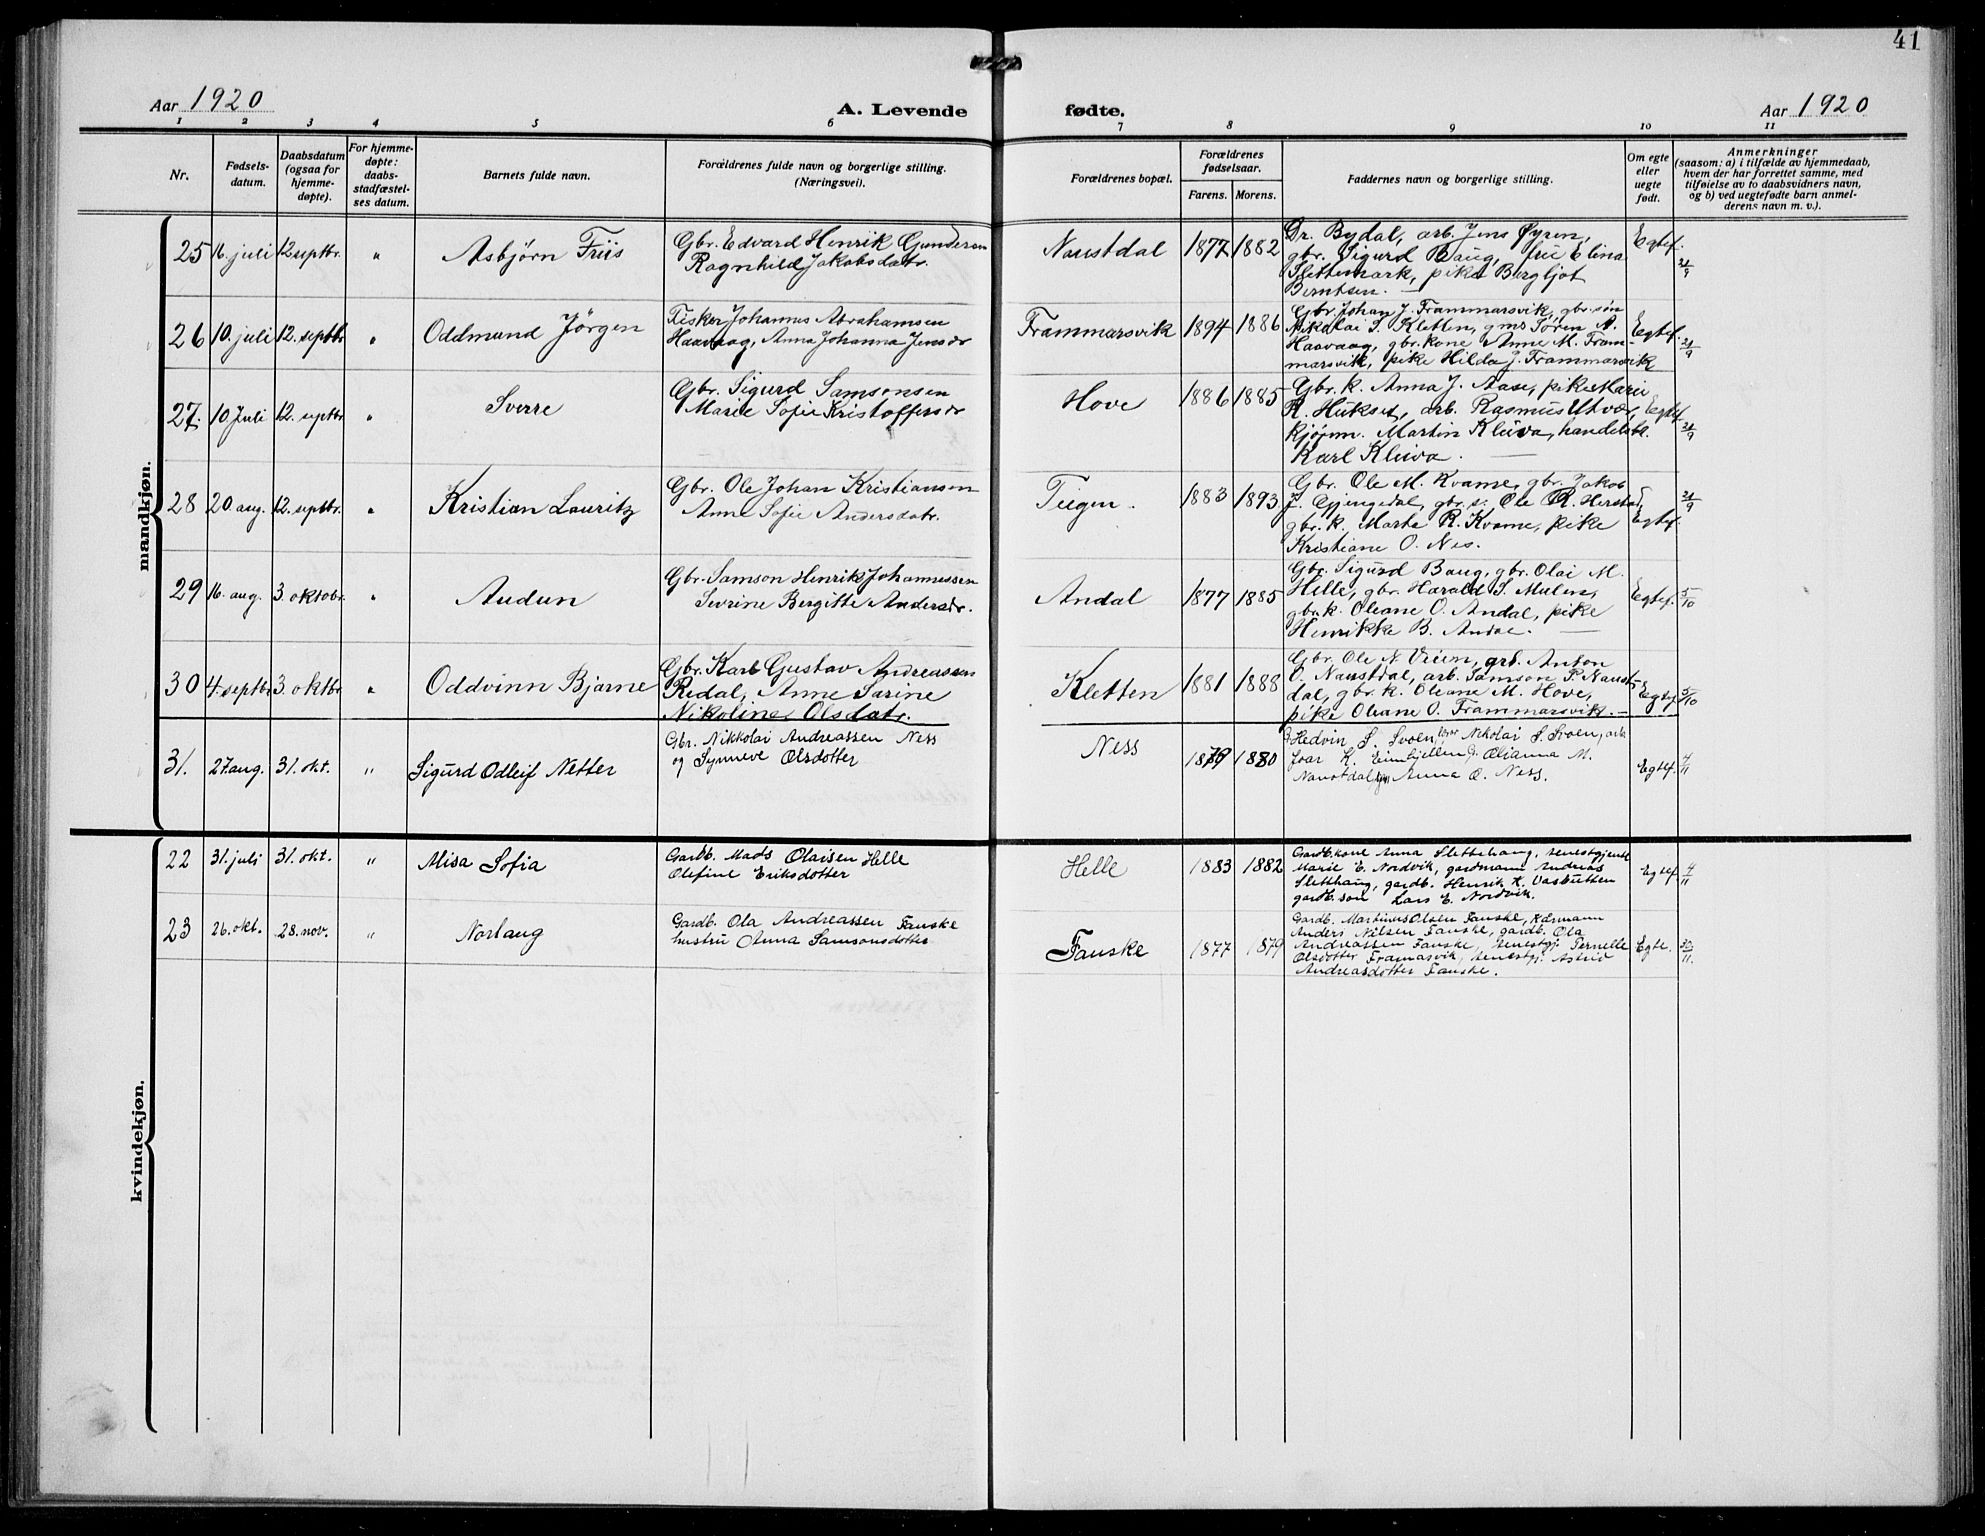 41
Aar 1920 A. Levende fødte. Aar 1920
1 2 3 4 5 6 7 8 9 10 11
Nr.
Fødsels-
datum.
Daabsdatum
(ogsaa for
hjemme-
døpte).
For hjemme-
døpte:
daabs-
stadfæstel-
ses datum.
Barnets fulde navn.
Forældrenes fulde navn og borgerlige stilling.
(Næringsvei).
Forældrenes bopæl.
Forældrenes
fødselsaar.
Farens. Morens.
Faddernes navn og borgerlige stilling.
Om egte
eller
uegte
født.
Anmerkninger
(saasom: a) i tilfælde av hjemmedaab,
hvem der har forrettet samme, med
tilføielse av to daabsvidners navn,
og b) ved uegtefødte barn anmel-
derens navn m. v.).
mandkjøn.
25 16. juli 12 septbr. " Asbjørn Friis
Gbr. Edvard Henrik Gundersen
Ragnhild Jakobsdatr.
Naustdal 1877 1882
Dr. Bydal, arb. Jens Øyren,
gbr. Sigurd Baug, frue Elina
Slettemark, pike Bergljot
Berntsen. —
Egtef. 21/9
26 10. juli 12. septbr " Oddmund Jörgen
Fisker Johannes Abrahamsen
Haavaag, Anna Johanna Jensdr
Frammarsvik 1894 1886
Gbr. Johan J. Frammarsvik, gbr. søn
Nikolai S. Kletten, gms Søren A.
Haavaag, gbr. kone Anne M. Fram-
marsvik, pike Hilda J. Frammarsvik
Egtef. 21/9
27. 10 Juli 12. septbr " Sverre
Gbr. Sigurd Samsonsen
Marie Sofie Kristoffersdr
Hove 1886 1885
Gbr. k. Anna J. Aase, pike Marie
R. Hukset, arb. Rasmus Utvær,
Kjøpm. Martin Kleiva, handelsbt.
Karl Kleiva. —
Egtef. 21/9
28 20 aug. 12. septbr " Kristian Lauritz
Gbr. Ole Johan Kristiansen
Anne Sofie Andersdatr.
Teigen. 1883 1893
Gbr. Ole M. Kvame, gbr. Jakob
J. Gjengedal, gbr. s. Ole R. Herstad,
gbr. k. Marta R. Kvame, pike
Kristiane O. Nes.
Egtef. 21/9
29 16. aug. 3 oktobr. " Audun
Gbr. Samson Henrik Johannessen
Sevrine Bergitte Andersdr.
Andal 1877 1885
Gbr. Sigurd Baug, gbr. Olai M.
Helle, gbr. Harald S. Mulen,
gbr. k. Oleane O. Andal, pike
Henrikke B. Andal. —
Egtef. 5/10
30 4 septbr 3. oktbr " Oddvinn Bjarne
Gbr. Karl Gustav Andreassen
Redal, Anne Sarine
Nikoline Olsdatr.
Kletten 1881 1888
Gbr. Ole N. Vieen, arb. Anton
O. Naustdal, arb. Samson P. Naust-
dal, gbr. k. Oleane M. Hove,
pike Oleane O. Frammarsvik. —
Egtef 5/10
31. 27. aug. 31. okt. " Sigurd Odleif Netter
Gbr. Nikkolai Andreassen Ness
og Synneve Olsdotter
Ness 1879 1880
Hedvin S. Svoen, Nikolai S. Svoen, arb.
Ivar K. Eimhjellen, Oleanna M.
Naustdal, Anna O. Ness.
Egtef. 4/11
kvindekjøn.
22 31. juli 31. okt. " Alisa Sofia
Gardb. Mads Olaisen Helle
Olefine Eriksdotter
Helle 1883 1882
Gardb. kone Anna Slettehaug, tenestgjente
Marie E. Nordvik, gardmann Andreas
Sletthaug, gardb. Henrik K. Vasbotten
gardb. son Lars E. Nordvik.
Egtef. 4/11
23 26. okt. 28. nov. " Norlaug
Gardb. Ola Andreassen Fauske
hustru Anna Samsonsdotter
Fauske 1877 1879
Gardb. Martinus Olsen Fauske, Kårmann
Anders Nilsen Fauske, gardb. Ola
Andreassen Fauske, tenestgj. Pernelle
Olsdotter Framasvik, tenestgj. Astrid
Andreasdotter Fauske.
Egte. 30/11.